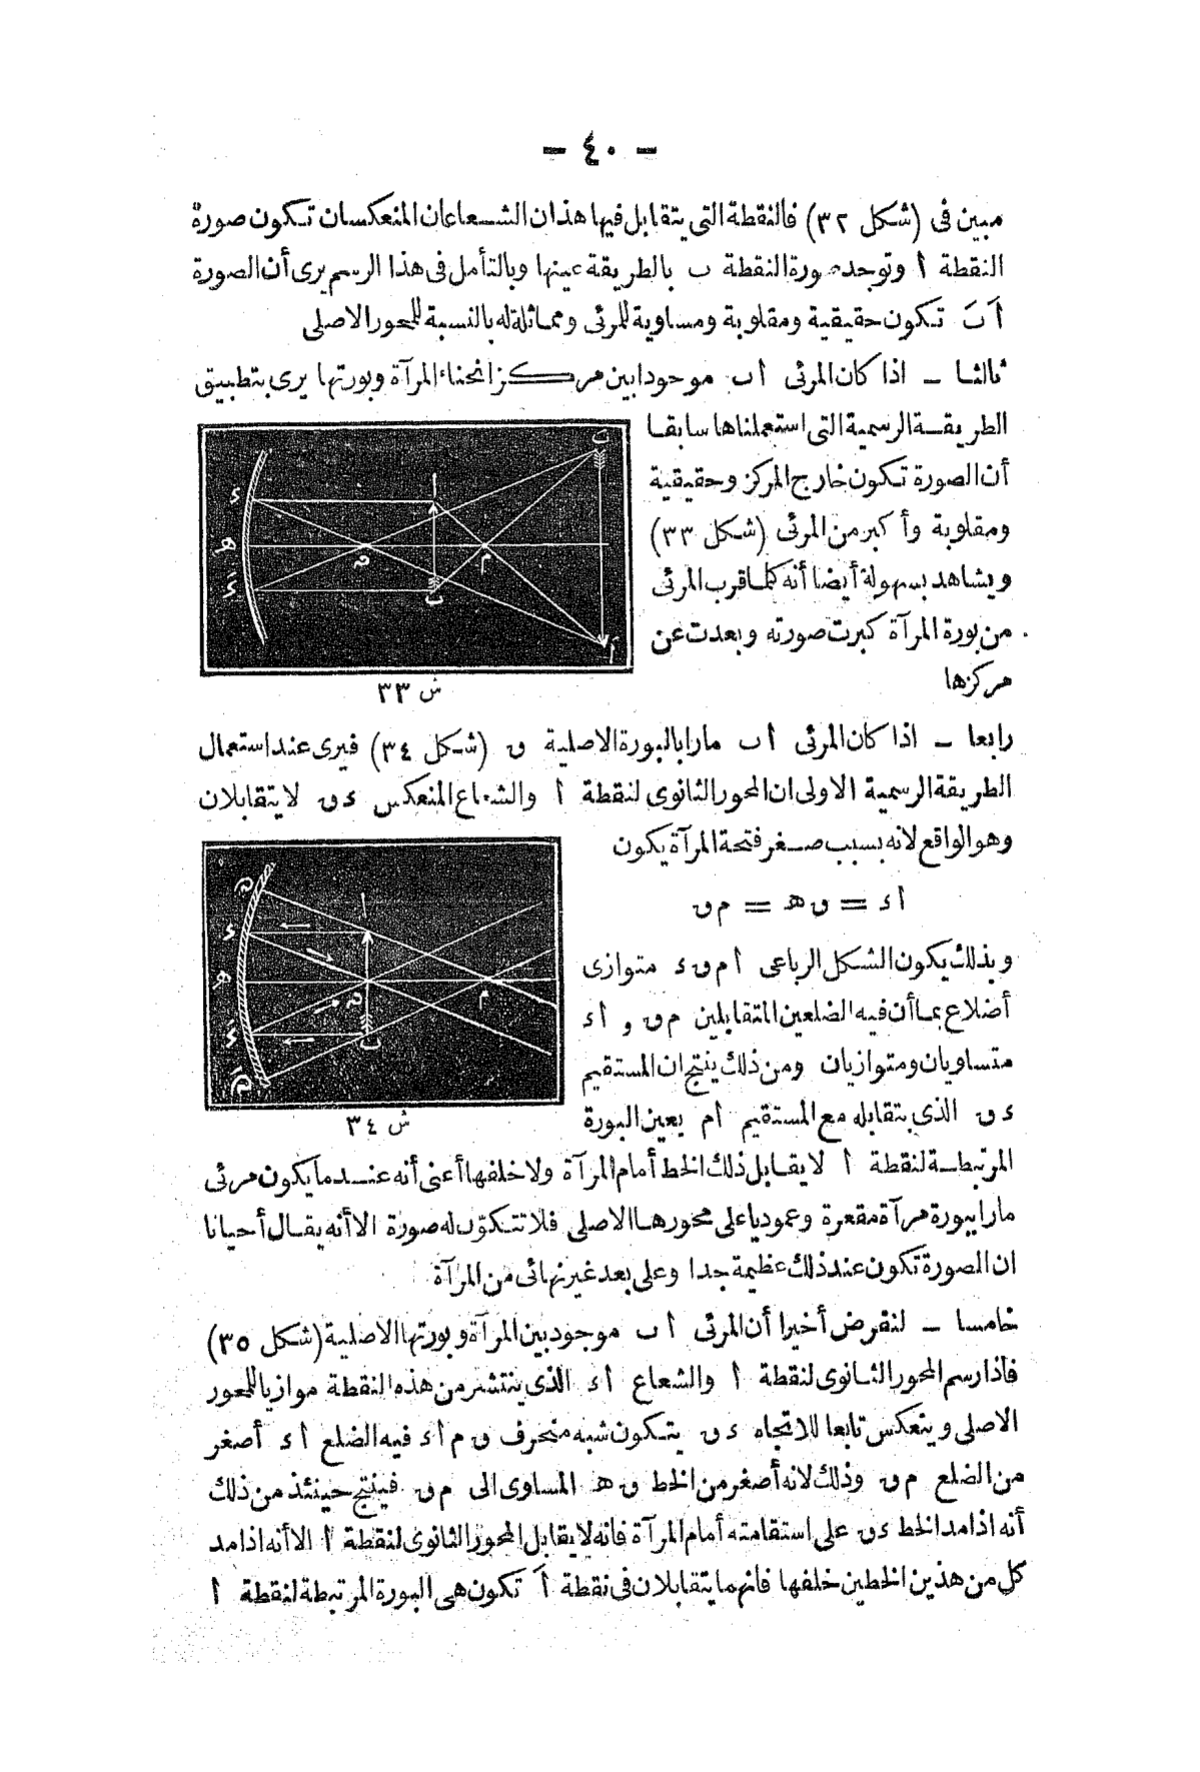 - ٤٠ -
مبين فى (شكل ٣٢) فالنقطة التى يتقابل فيها هذان الشعاعان المنعكسان تكون صورة
النقطة أ وتوجد صورة النقطة ب بالطريقة عينها وبالتأمل فى هذا الرسم يرى أن الصورة
أَ بَ تكون حقيقية ومقلوبة ومساوية للمرئى ومماثلة له بالنسبة للمحور الاصلى
ثالثا - اذا كان المرئى أ ب موجودا بين مركز انحناء المرآة وبورتها يرى بتطبيق
الطريقة الرسمية التى استعملناها سابقا
أن الصورة تكون خارج المركز وحقيقية
ومقلوبة وأكبر من المرئى (شكل ٣٣)
ويشاهد بسهولة أيضا أنه كلما قرب المرئى
من بورة المرآة كبرت صورته وبعدت عن
مركزها
أ
بَ
ء
ھ
ءَ
ں
م
ب
أَ
ش ٣٣
رابعا - اذا كان المرئى أ ب مارا بالبورة الاصلية ں (شكل ٣٤) فيرى عند استعمال
الطريقة الرسمية الاولى ان المحور الثانوى لنقطة أ والشعاع المنعكس ء ں لا يتقابلان
وهو الواقع لانه بسبب صغر فتحة المرآة يكون
أ ء = ں ھ = م ں
وبذلك يكون الشكل الرباعى أ م ں ء متوازى
أضلاع بما أن فيه الضلعين المتقابلين م ں و أ ء
متساويان ومتوازيان ومن ذلك ينتج ان المستقيم
ء ں الذى بتقابله مع المستقيم أ م يعين البورة
أ
ء
ھ
م
ں
ءَ
ب
ش ٣٤
المرتبطة لنقطة أ لا يقابل ذلك الخط أمام المرآة ولا خلفها أعنى أنه عند ما يكون مرئى
مارا ببورة مرآة مقعرة وعموديا على محورها الاصلى فلا تتكوّن له صورة الا أنه يقال أحيانا
ان الصورة تكون عند ذلك عظيمة جدا وعلى بعد غير نهائى من المرآة
خامسا - لنفرض أخيرا أن المرئى أ ب موجود بين المرآة وبورتها الاصلية (شكل ٣٥)
فاذا رسم المحور الثانوى لنقطة أ والشعاع أ ء الذى ينتشر من هذه النقطة موازيا للمحور
الاصلى وينعكس تابعا للاتجاه ء ں يتكون شبه منحرف ں م أ ء فيه الضلع أ ء أصغر
من الضلع م ں وذلك لانه أصغر من الخط ں ھ المساوى الى م ں فينتج حينئذ من ذلك
أنه اذا مد الخط ء ں على استقامته أمام المرآة فانه لا يقابل المحور الثانوى لنقطة أ الا أنه اذا مد
كل من هذين الخطين خلفها فانهما يتقابلان فى نقطة أَ تكون هى البورة المرتبطة لنقطة أ